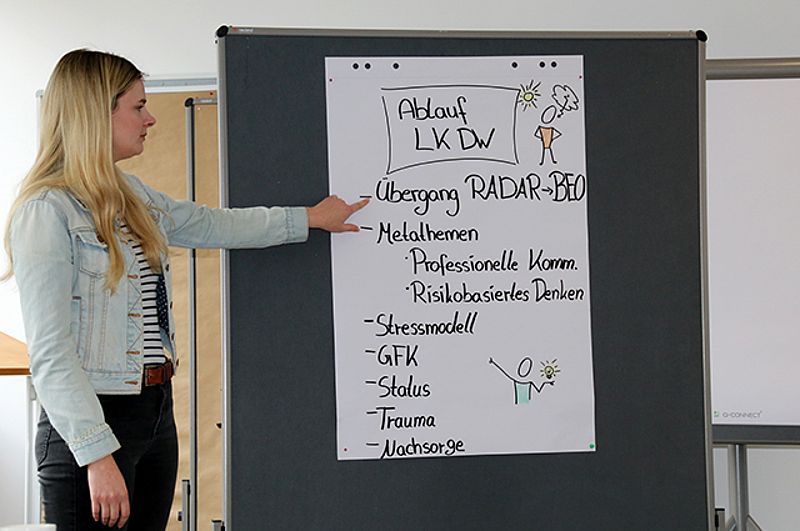 Ablauf
LK DW
- Übergang RADAR→BEO
- Metathemen
· Professionelle Komm.
· Risikobasiertes Denken
- Stressmodell
- GFK
- Status
- Trauma
- Nachsorge
Q-CONNECT